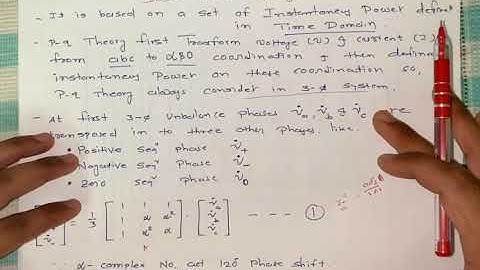 - It is based on a set of Instantaney Power define
in Time Domain.
- P-q Theory first Transform Voltage (v) & current (2)
from abc to αβ0 coordination & then define
instantaney Power on these coordination so,
P-q Theory always consider in 3-Ø System.
- At first 3-Ø Unbalance phases v̇a, v̇b & v̇c
transposed in to three other phases. like.
• Positive seqn phase v̇+
• Nagative seqn phase v̇-
• Zero seqn phase v̇0
= 1/3 [1 1 1 · [v̇a
1 α α² v̇b --- ①
1 α² α] v̇c]
α- complex No. act 120° Phase shift.